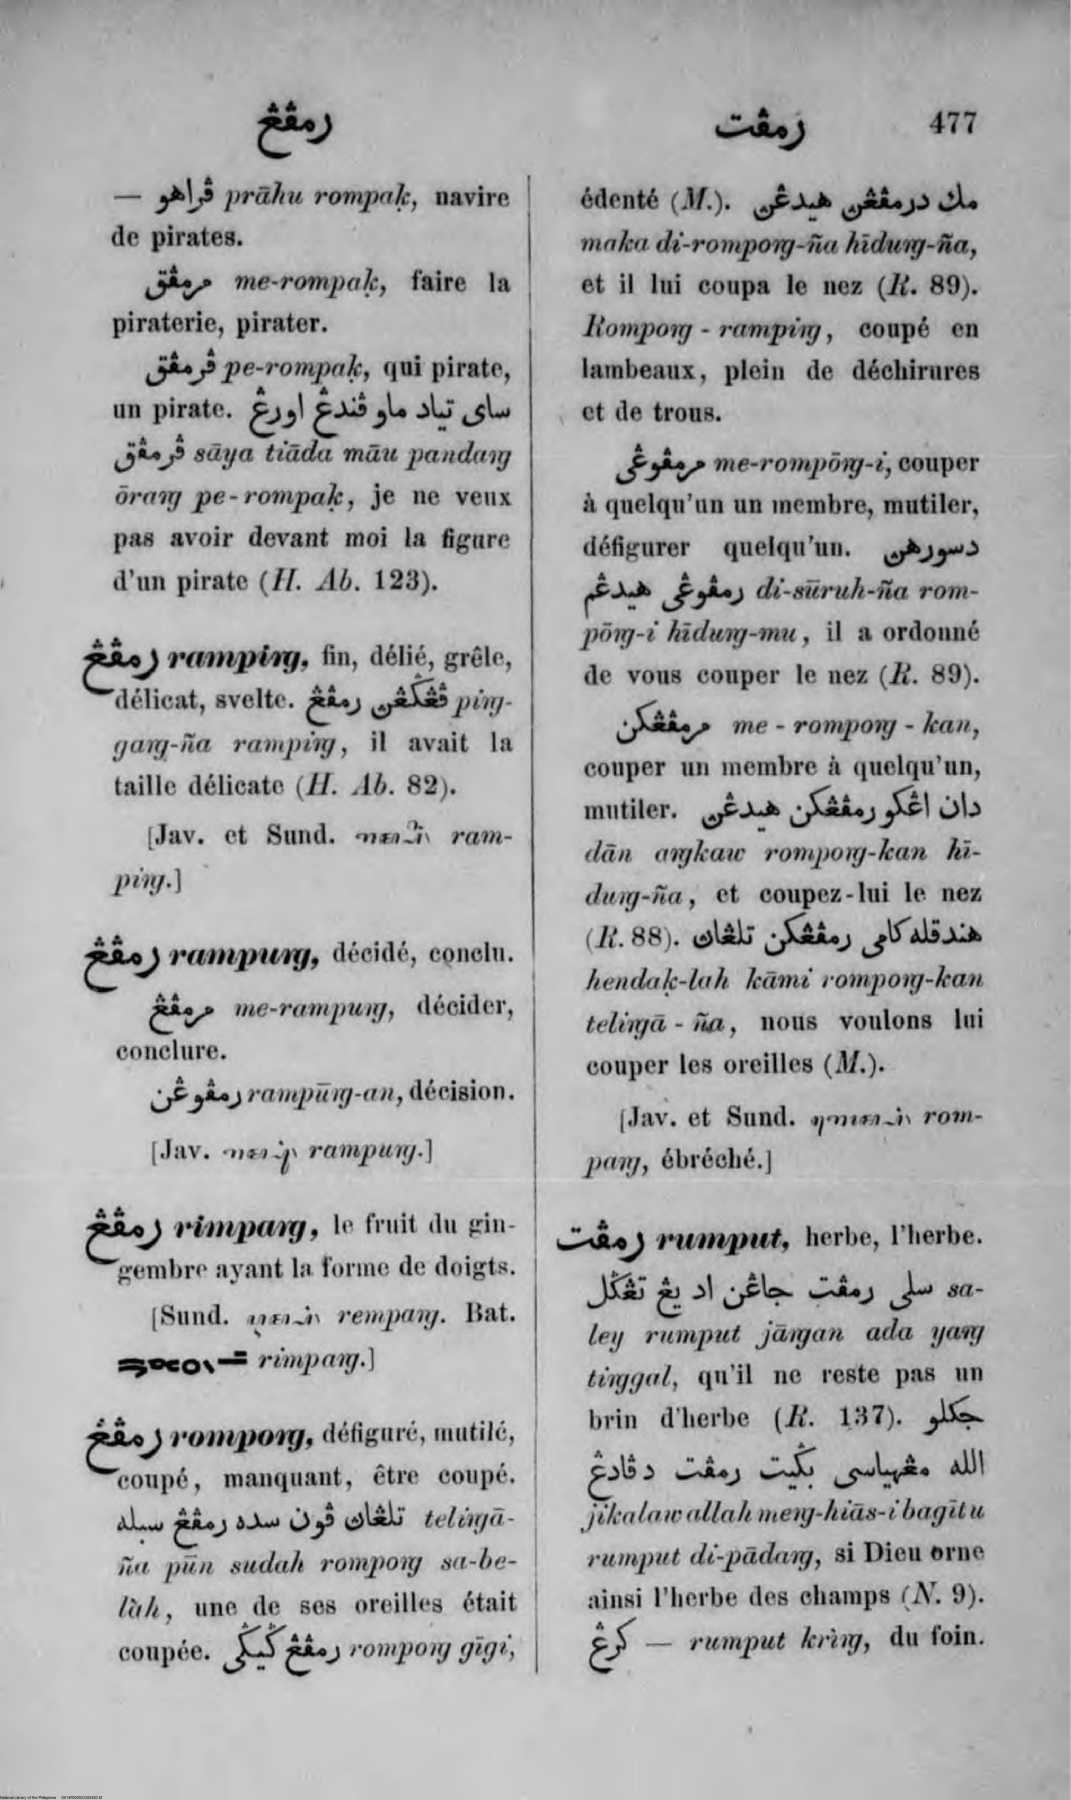 رمڤڠ
رمڤت 477
— ڤراهو prāhu rompaḳ, navire
de pirates.
مرمڤق me-rompaḳ, faire la
piraterie, pirater.
ڤرمڤق pe-rompaḳ, qui pirate,
un pirate. ساي تياد ماو ڤندڠ اورڠ
ڤرمڤق sāya tiāda māu pandaŋ
ōraŋ pe-rompaḳ, je ne veux
pas avoir devant moi la figure
d'un pirate (H. Ab. 123).
رمڤڠ rampiŋ, fin, délié, grêle,
délicat, svelte. ڤڠݢڠن رمڤڠ piŋ-
gaŋ-ña rampiŋ, il avait la
taille délicate (H. Ab. 82).
[Jav. et Sund. ram-
piŋ.]
رمڤڠ rampuŋ, décidé, conclu.
مرمڤڠ me-rampuŋ, décider,
conclure.
رمڤوڠن rampūŋ-an, décision.
[Jav. rampuŋ.]
رمڤڠ rimpaŋ, le fruit du gin-
gembre ayant la forme de doigts.
[Sund. rempaŋ. Bat.
rimpaŋ.]
رمڤڠ rompoŋ, défiguré, mutilé,
coupé, manquant, être coupé.
تلڠاڽ ڤون سده رمڤڠ سبله teliŋā-
ña pūn sudah rompoŋ sa-be-
làh, une de ses oreilles était
coupée. رمڤڠ ݢيݢي rompoŋ gīgi,
édenté (M.). مك درمڤڠن هيدڠن
maka di-rompoŋ-ña hīduŋ-ña,
et il lui coupa le nez (R. 89).
Rompoŋ - rampiŋ, coupé en
lambeaux, plein de déchirures
et de trous.
مرمڤوڠي me-rompōŋ-i, couper
à quelqu'un un membre, mutiler,
défigurer quelqu'un. دسورهن
رمڤوڠي هيدڠم di-sūruh-ña rom-
pōŋ-i hīduŋ-mu, il a ordonné
de vous couper le nez (R. 89).
مرمڤڠكن me - rompoŋ - kan,
couper un membre à quelqu'un,
mutiler. دان اڠكو رمڤڠكن هيدڠن
dān aŋkaw rompoŋ-kan hī-
duŋ-ña, et coupez-lui le nez
(R. 88). هندقله كامي رمڤڠكن تلڠاڽ
hendaḳ-lah kāmi rompoŋ-kan
teliŋā - ña, nous voulons lui
couper les oreilles (M.).
[Jav. et Sund. rom-
paŋ, ébréché.]
رمڤت rumput, herbe, l'herbe.
سلي رمڤت جاڠن اد يڠ تڠݢل sa-
ley rumput jāŋan ada yaŋ
tiŋgal, qu'il ne reste pas un
brin d'herbe (R. 137). جكلو
الله مڠهياسي بݢيت رمڤت دڤادڠ
jikalaw allah meŋ-hiās-i bagītu
rumput di-pādaŋ, si Dieu orne
ainsi l'herbe des champs (N. 9).
كرڠ — rumput krìŋ, du foin.